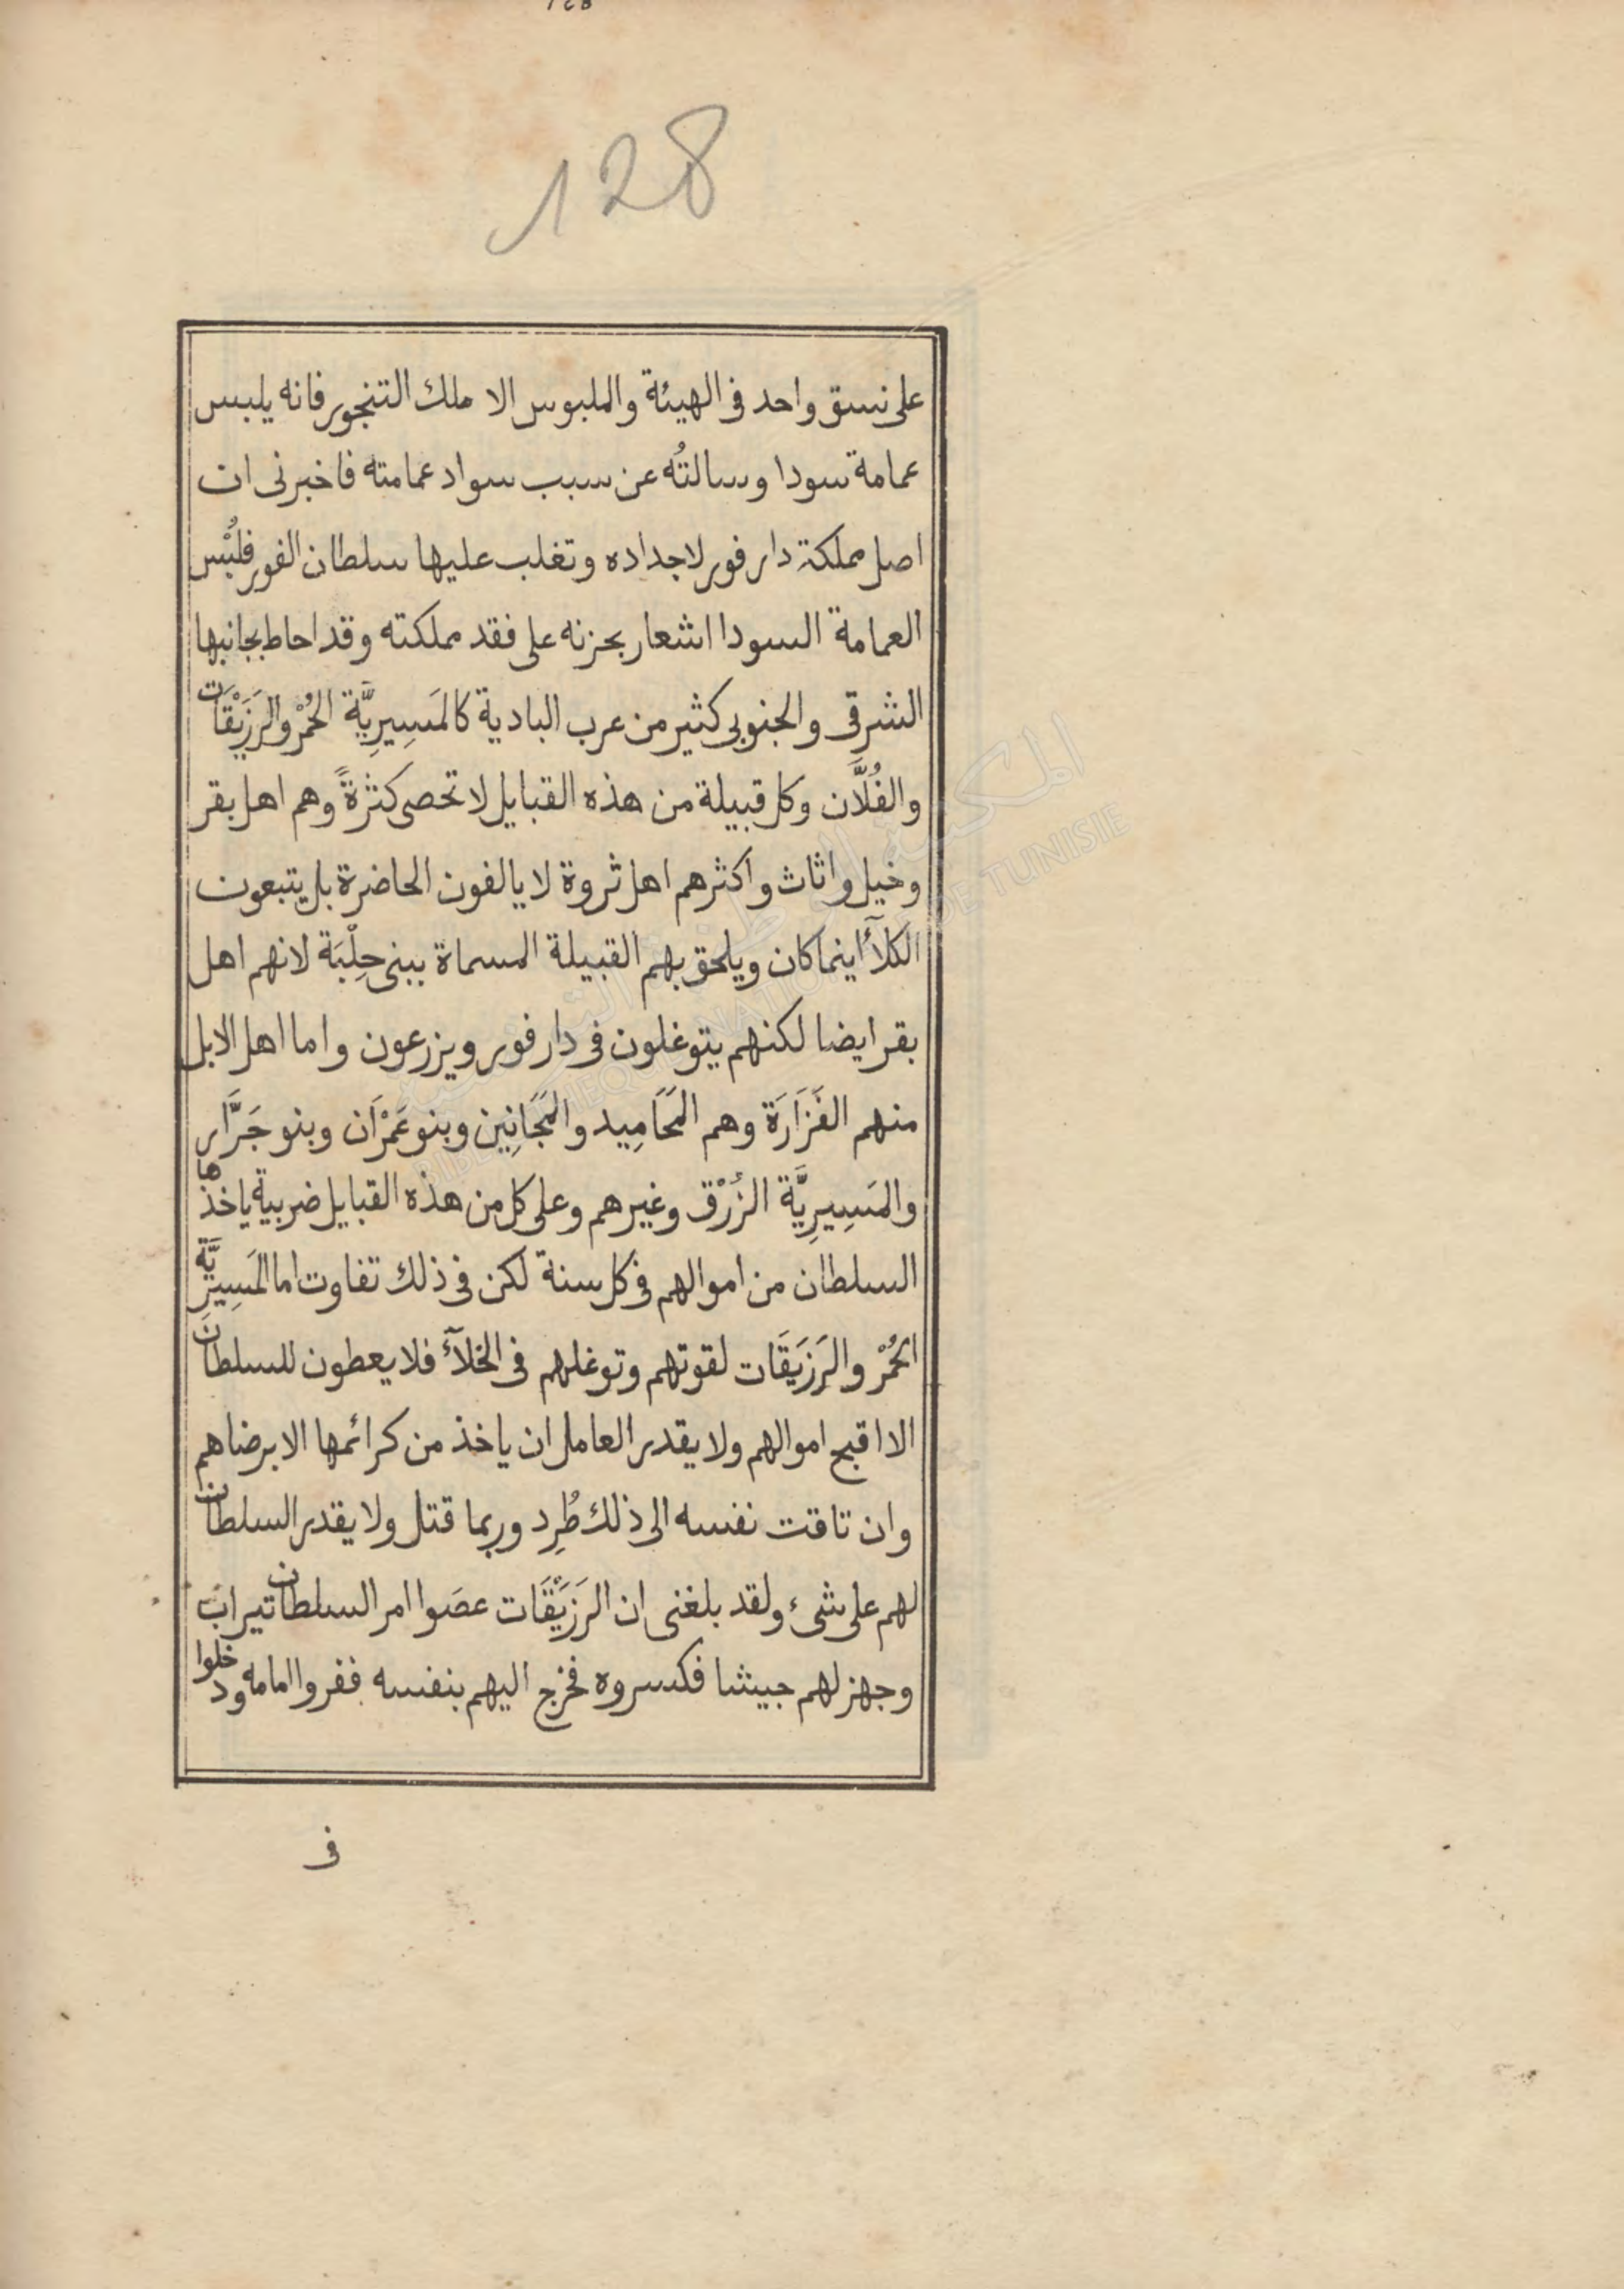 128
على نسق واحد فى الهيئة والملبوس الا ملك التنجور فانه يلبس
عمامة سودا وسالتُه عن سبب سواد عمامته فاخبرنى ان
اصل مملكة دار فور لاجداده وتغلب عليها سلطان الفور فلُبْس
العمامة السودا اشعار بحزنه على فقد مملكته وقد احاط بجانبها
الشرقى والجنوبى كثير من عرب البادية كالمَسِيرِيَّة الحُمْر والرَزَيْقَات
والفُلَّان وكل قبيلة من هذه القبايل لا تحصى كثرةً وهم اهل بقر
وخيل واثاث واكثرهم اهل ثروة لا يالفون الحاضرة بل يتبعون
الكلأ اينما كان ويلحق بهم القبيلة المسماة ببنى حِلْبَة لانهم اهل
بقر ايضا لكنهم يتوغلون فى دار فور ويزرعون واما اهل الابل
منهم الفَزَارَة وهم المَحَامِيد والمَجَانِين وبنو عَمْرَان وبنو جَرَّار
والمَسِيرِيَّة الزُرْق وغيرهم وعلى كل من هذه القبايل ضريبة ياخذها
السلطان من اموالهم فى كل سنة لكن فى ذلك تفاوت اما المَسِيرِيَّة
الحُمْر والرَزَيقَات لقوتهم وتوغلهم فى الخلآء فلا يعطون للسلطان
الا اقبح اموالهم ولا يقدر العامل ان ياخذ من كرائمها الا برضاهم
وان تاقت نفسه الى ذلك طُرِد وربما قتل ولا يقدر السلطان
لهم على شىء ولقد بلغنى ان الرَزَيْقَات عصَوا امر السلطان تيراب
وجهز لهم جيشا فكسروه فخرج اليهم بنفسه ففروا امامه ودخلوا
فى
المكتبة الوطنية التونسية
BIBLIOTHEQUE NATIONALE DE TUNISIE